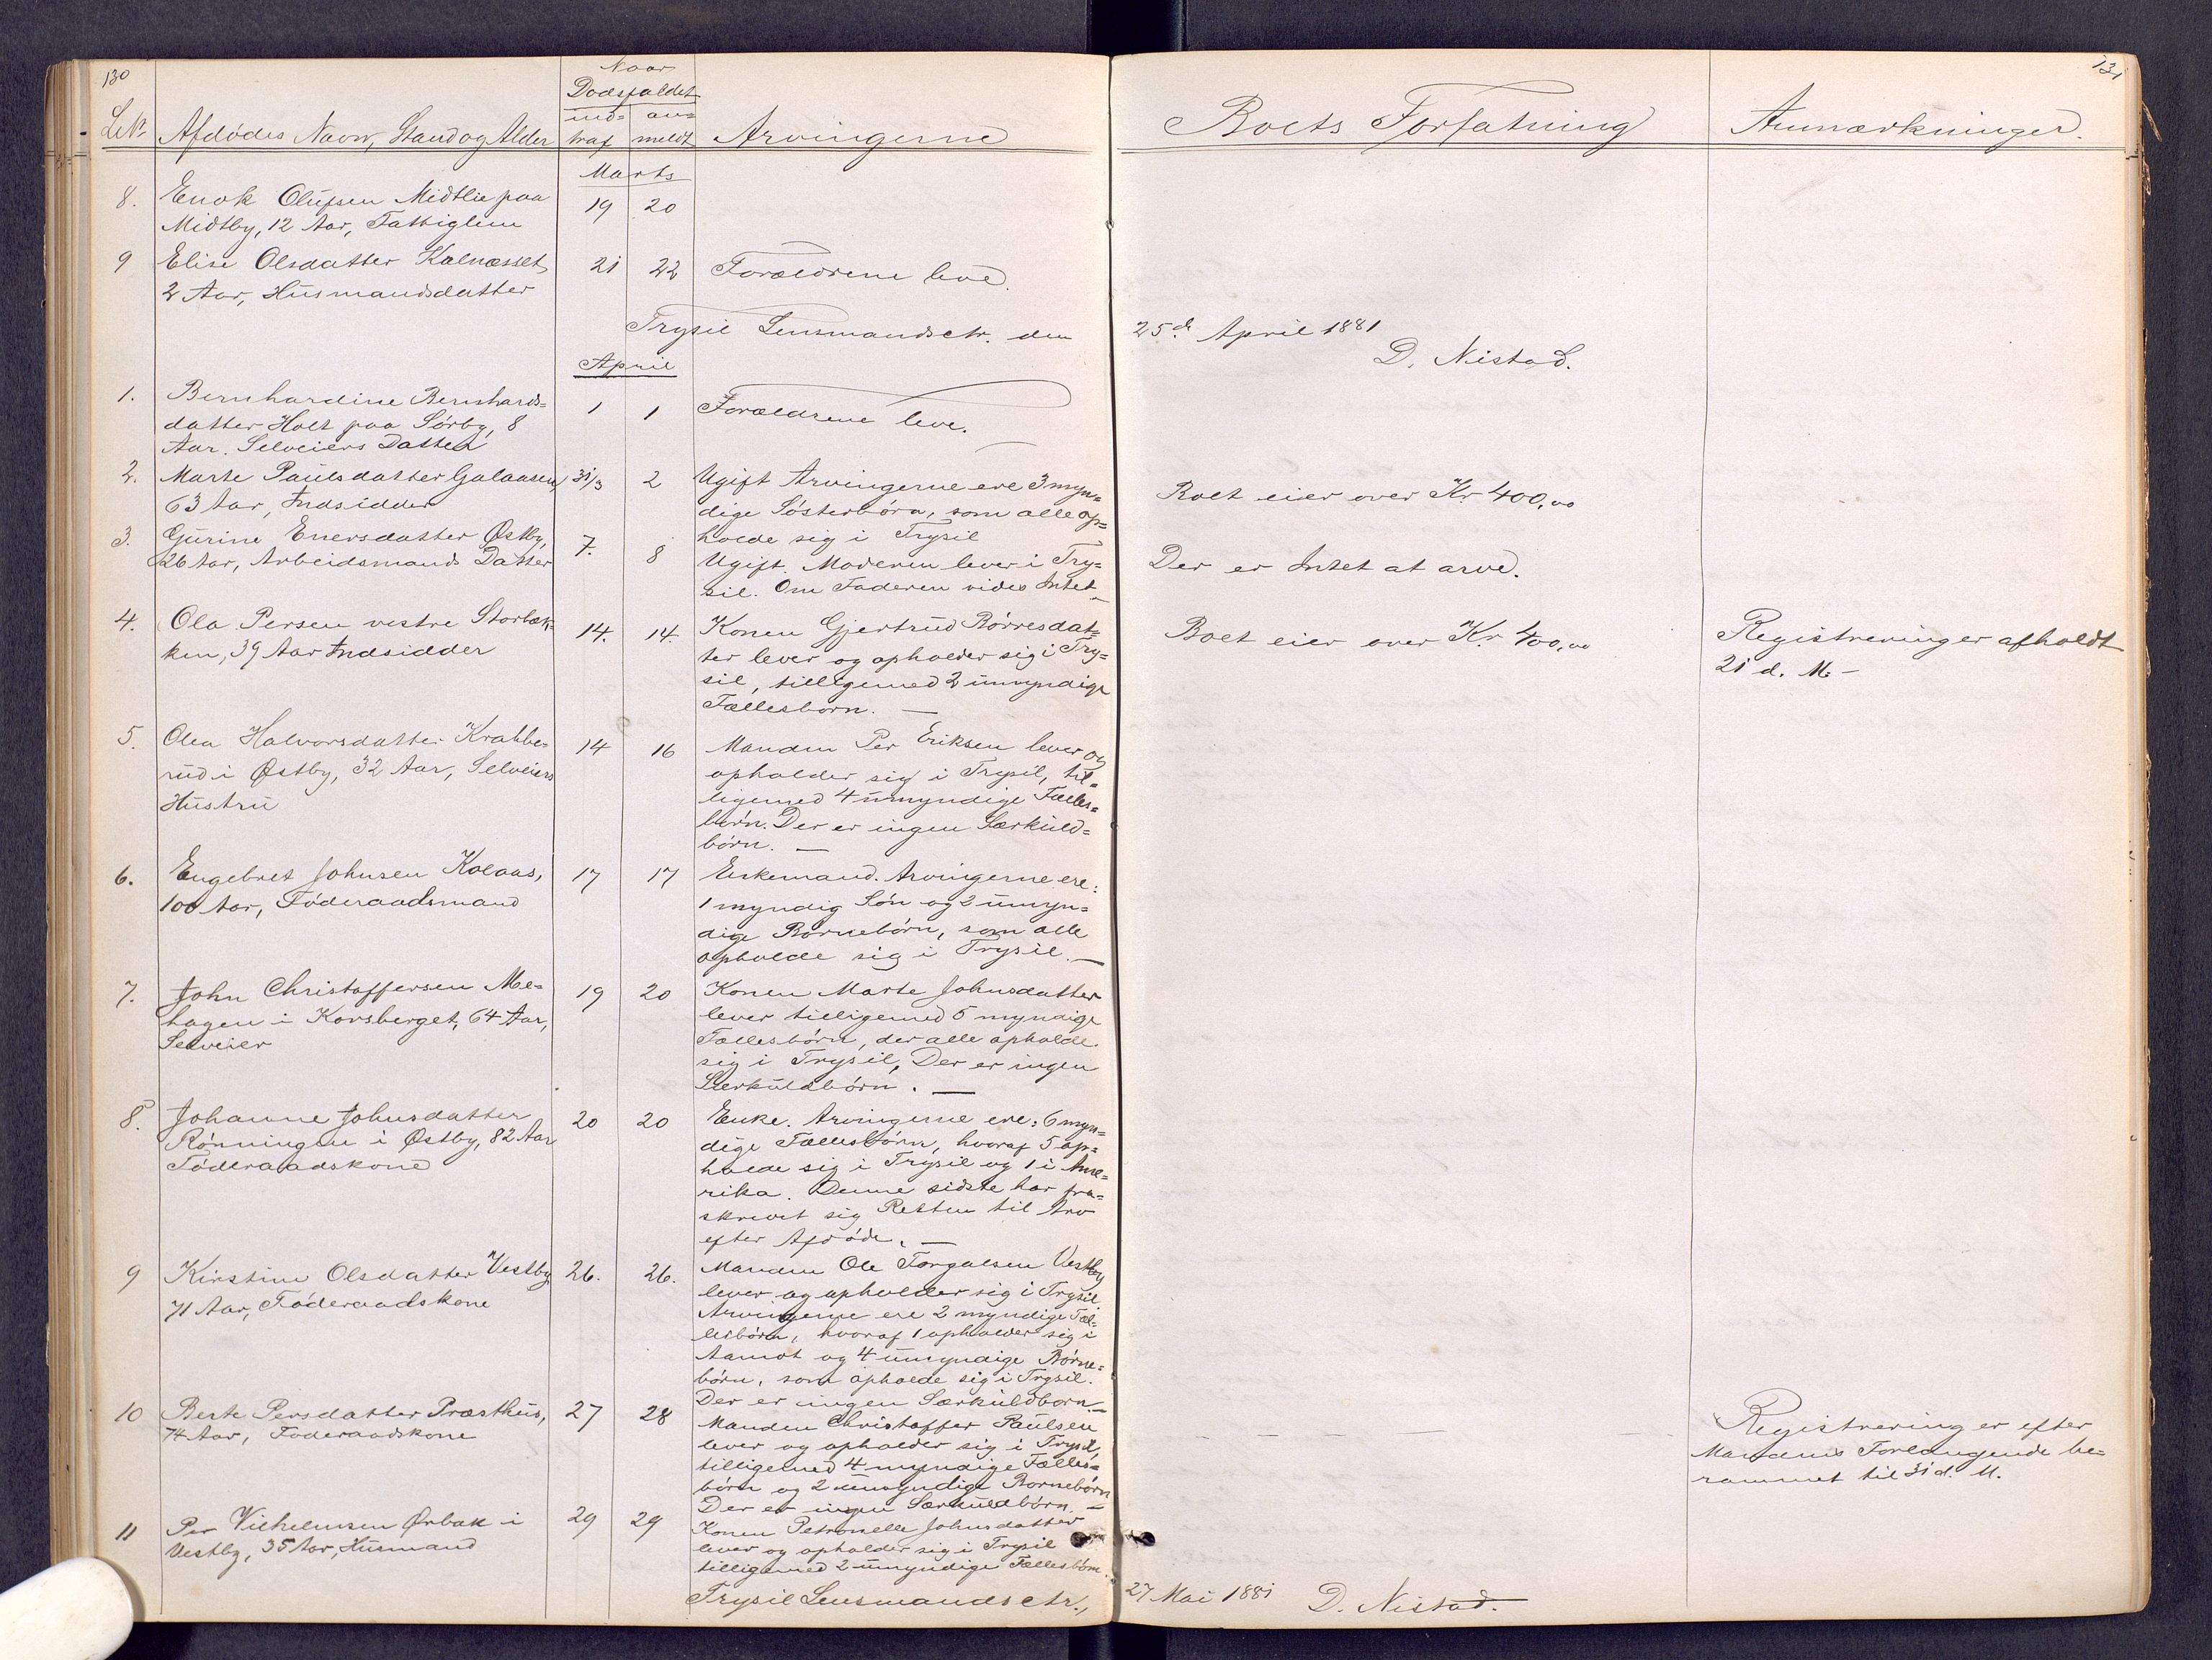 130
Naar
Dødsfaldet
LNo Afdødes Navn, Stand og Alder ind= traf an= meldt Arvingerne
Marts
8. Enok Olufsen Midtlie paa 19 20
Midtby, 12 Aar, Fattiglem
9 Elise Olsdatter Kalnæsset, 21 22 Forældrene leve.
2 Aar, Husmandsdatter
Trysil Lensmandsctr. den
April
1. Bernhardine Bernhards= 1 1 Forældrene leve.
datter Holt paa Sørby, 8
Aar. Selveiers Datter
2. Marte Paulsdatter Galaasen, 31/3 2 Ugift Arvingerne ere 3 myn=
63 Aar, Indsidder dige Søsterbørn, som alle op=
holde sig i Trysil
3. Gurine Enersdatter Østby, 7. 8 Ugift. Moderen lever i Try=
26 Aar, Arbeidsmands Datter sil. Om Faderen vides Intet
4. Ola Persen vestre Storbæk= 14. 14. Konen Gjertrud Børresdat=
ken, 39 Aar Indsidder ter lever og opholder sig i Try=
sil, tilligemed 2 umyndige
Fællesbørn. —
5. Olea Halvorsdatter Krabbe= 14 16 Manden Per Eriksen lever og
rud i Østby, 32 Aar, Selveiers opholder sig i Trysil, til=
Hustru ligemed 4 umyndige Fælles=
børn. Der er ingen Særkuld=
børn. —
6. Engebret Johnsen Kolaas, 17 17 Enkemand. Arvingerne ere:
100 Aar, Føderaadsmand 1 myndig Søn og 2 umyn=
dige Børnebørn, som alle
opholde sig i Trysil. —
7. John Christoffersen Mo= 19 20 Konen Marte Johnsdatter
hagen i Korsberget, 64 Aar, lever tilligemed 5 myndige
Selveier Fællesbørn, der alle opholde
sig i Trysil, Der er ingen
Særkuldbørn. —
8. Johanne Johnsdatter 20 20 Enke. Arvingerne ere: 6 myn=
Rønningen i Østby, 82 Aar dige Fællesbørn, hvoraf 5 op=
Føderaadskone holde sig i Trysil og 1 i Ame=
rika. Denne sidste har fra=
skrevet sig Retten til Arv
efter Afdøde. —
9 Kirstine Olsdatter Vestby 26. 26. Manden Ole Torgalsen Vestby
71 Aar, Føderaadskone lever og opholder sig i Trysil
Arvingerne ere 2 myndige Fæl=
lesbørn, hvoraf 1 opholder sig i
Aamot og 4 umyndige Børne=
børn, som opholde sig i Trysil.
Der er ingen Særkuldbørn. —
10 Berte Persdatter Præsthus, 27 28 Manden Christoffer Paulsen
74 Aar, Føderaadskone lever og opholder sig i Trysil,
tilligemed 4 myndige Fælles=
børn og 2 umyndige Børnebørn
Der er ingen Særkuldbørn. —
11 Per Vilhelmsen Ørbæk i 29 29 Konen Petronelle Johnsdatter
Vestby, 35 Aar, Husmand lever og opholder sig i Trysil
tilligemed 2 umyndige Fællesbørn.
Trysil Lensmandsctr.,
131
Boets Forfatning Anmærkninger.
25de April 1881
D. Nistad.
Boet eier over Kr 400,00
Der er Intet at arve.
Boet eier over Kr. 400,00 Registrering er afholdt
21 d. M. —
Registrering er efter
Mandens Forlangende be=
rammet til 31 d. M.
27 Mai 1881 D. Nistad.